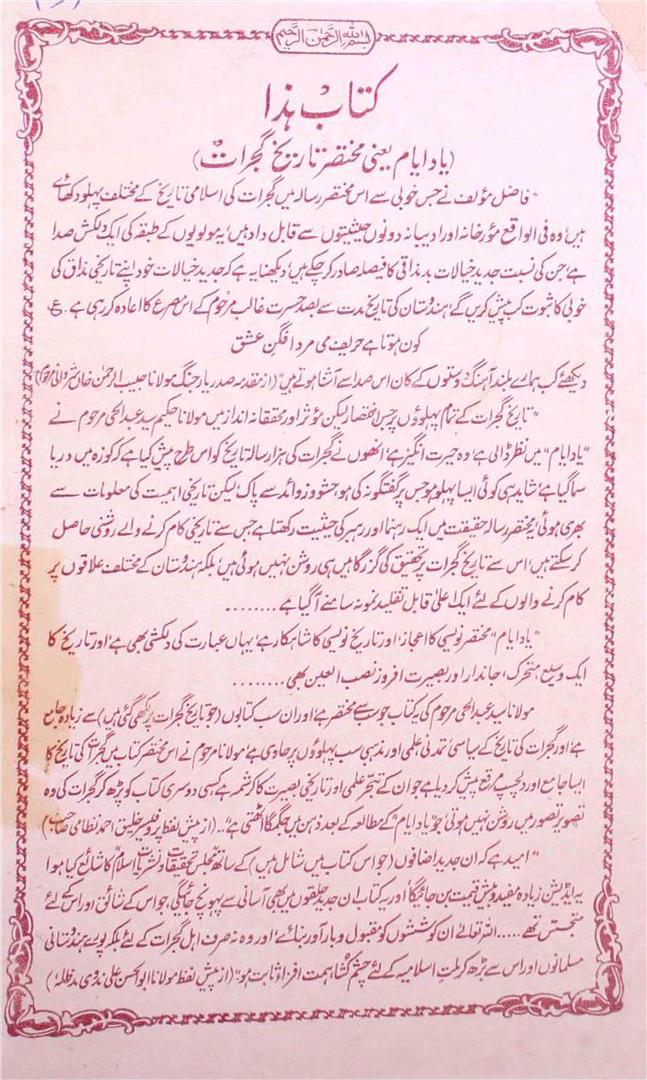 بسم اللہ الرحمن الرحیم
کتاب ہٰذا
(یاد ایام یعنی مختصر تاریخ گجرات)
"فاضل مؤلف نے جس خوبی سے اس مختصر رسالہ میں گجرات کی اسلامی تاریخ کے مختلف پہلو دکھائے
ہیں، وہ فی الواقع مؤرخانہ اور ادیبانہ دونوں حیثیتوں سے قابل داد ہیں، یہ مولویوں کے طبقہ کی ایک دلکش صدا
ہے، جن کی نسبت جدید خیالات بدمذاقی کا فیصلہ صادر کر چکے ہیں، دیکھنا یہ ہے کہ جدید خیالات خود اپنے تاریخی مذاق کی
خوبی کا ثبوت کب پیش کریں گے، ہندوستان کی تاریخ مدت سے بصد حسرت غالب مرحوم کے اس مصرع کا اعادہ کر رہی ہے۔ ع
کون ہوتا ہے حریف مے مرد افگن عشق
دیکھئے کب ہمارے بلند آہنگ دوستوں کے کان اس صدا سے آشنا ہوتے ہیں" (از مقدمہ صدر یار جنگ مولانا حبیب الرحمن خاں شروانی مرحوم)
"تاریخ گجرات کے تمام پہلوؤں پر جس اختصار لیکن مؤثر اور محققانہ انداز میں مولانا حکیم سید عبدالحی مرحوم نے
"یاد ایام" میں نظر ڈالی ہے، وہ حیرت انگیز ہے، انھوں نے گجرات کی ہزار سالہ تاریخ کو اس طرح پیش کیا ہے کہ کوزہ میں دریا
سما گیا ہے، شاید ہی کوئی ایسا پہلو ہو جس پر گفتگو نہ کی ہو، حشو و زوائد سے پاک لیکن تاریخی اہمیت کی معلومات سے
بھری ہوئی، یہ مختصر رسالہ حقیقت میں ایک رہنما اور رہبر کی حیثیت رکھتا ہے جس سے تاریخی کام کرنے والے روشنی حاصل
کر سکتے ہیں، اس سے تاریخ گجرات پر تحقیق کی گزرگاہیں ہی روشن نہیں ہوئی ہیں، بلکہ ہندوستان کے مختلف علاقوں پر
کام کرنے والوں کے لئے ایک اعلیٰ قابل تقلید نمونہ سامنے آ گیا ہے ........
"یاد ایام" مختصر نویسی کا اعجاز، اور تاریخ نویسی کا شاہکار ہے، یہاں عبارت کی دلکشی بھی ہے، اور تاریخ کا
ایک وسیع، متحرک، جاندار اور بصیرت افروز نصب العین بھی ........
مولانا سید عبدالحی مرحوم کی یہ کتاب جو سب سے مختصر ہے، اور ان سب کتابوں (جو تاریخ گجرات پر لکھی گئی ہیں) سے زیادہ جامع
ہے، اور گجرات کی تاریخ کے سیاسی، تمدنی، علمی اور مذہبی سب پہلوؤں پر حاوی ہے، مولانا مرحوم نے اس مختصر کتاب میں گجرات کی تاریخ کا
ایسا جامع اور دلچسپ مرقع پیش کر دیا ہے جو ان کے تبحر علمی اور تاریخی بصیرت کا کرشمہ ہے، کسی دوسری کتاب کو پڑھ کر گجرات کی وہ
تصویر تصور میں روشن نہیں ہوتی، جو یاد ایام کے مطالعہ کے بعد ذہن میں جگمگا اٹھتی ہے".. (از پیش لفظ پروفیسر خلیق احمد نظامی صاحب)
"امید ہے کہ ان جدید اضافوں (جو اس کتاب میں شامل ہیں) کے ساتھ مجلس تحقیقات و نشریات اسلام کا شائع کیا ہوا
یہ ایڈیشن زیادہ مفید و بیش قیمت بن جائیگا، اور یہ کتاب ان جدید حلقوں میں بھی آسانی سے پہونچ جائیگی، جو اس کے شائق اور اسکے لئے
متجسس تھے..... اللہ تعالےٰ ان کوششوں کو مقبول و بارآور بنائے، اور وہ نہ صرف اہل گجرات کے لئے بلکہ پورے ہندوستانی
مسلمانوں اور اس سے بڑھ کر ملت اسلامیہ کے لئے چشم کشا، ہمت افزا، ثابت ہو" (از پیش لفظ مولانا ابوالحسن علی ندوی مدظلہٗ)